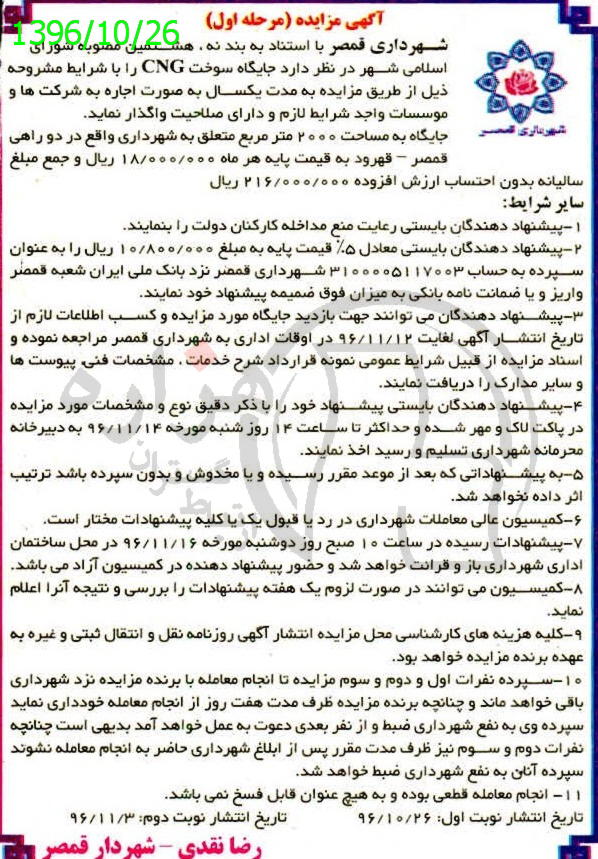 آگهی مزایده (مرحله اول)
1396/10/26
شهرداری قمصر با استناد به بند نه ، هشتمین مصوبه شورای
اسلامی شهر در نظر دارد جایگاه سوخت CNG را با شرایط مشروحه
ذیل از طریق مزایده به مدت یکسال به صورت اجاره به شرکت ها و
موسسات واجد شرایط لازم و دارای صلاحیت واگذار نماید.
شهرداری قمصر
جایگاه به مساحت ۲۰۰۰ متر مربع متعلق به شهرداری واقع در دو راهی
قمصر - قهرود به قیمت پایه هر ماه ۱۸/۰۰۰/۰۰۰ ریال و جمع مبلغ
سالیانه بدون احتساب ارزش افزوده ۲۱۶/۰۰۰/۰۰۰ ریال
سایر شرایط:
۱-پیشنهاد دهندگان بایستی رعایت منع مداخله کارکنان دولت را بنمایند.
۲-پیشنهاد دهندگان بایستی معادل ۵٪ قیمت پایه به مبلغ ۱۰/۸۰۰/۰۰۰ ریال را به عنوان
سپرده به حساب ۳۱۰۰۰۰۵۱۱۷۰۰۳ شهرداری قمصر نزد بانک ملی ایران شعبه قمصر
واریز و یا ضمانت نامه بانکی به میزان فوق ضمیمه پیشنهاد خود نمایند.
۳-پیشنهاد دهندگان می توانند جهت بازدید جایگاه مورد مزایده و کسب اطلاعات لازم از
تاریخ انتشار آگهی لغایت ۹۶/۱۱/۱۲ در اوقات اداری به شهرداری قمصر مراجعه نموده و
اسناد مزایده از قبیل شرایط عمومی نمونه قرارداد شرح خدمات ، مشخصات فنی، پیوست ها
و سایر مدارک را دریافت نمایند.
۴-پیشنهاد دهندگان بایستی پیشنهاد خود را با ذکر دقیق نوع و مشخصات مورد مزایده
در پاکت لاک و مهر شده و حداکثر تا ساعت ۱۴ روز شنبه مورخه ۹۶/۱۱/۱۴ به دبیرخانه
محرمانه شهرداری تسلیم و رسید اخذ نمایند.
۵-به پیشنهاداتی که بعد از موعد مقرر رسیده و یا مخدوش و بدون سپرده باشد ترتیب
اثر داده نخواهد شد.
۶-کمیسیون عالی معاملات شهرداری در رد یا قبول یک یا کلیه پیشنهادات مختار است.
۷-پیشنهادات رسیده در ساعت ۱۰ صبح روز دوشنبه مورخه ۹۶/۱۱/۱۶ در محل ساختمان
اداری شهرداری باز و قرائت خواهد شد و حضور پیشنهاد دهنده در کمیسیون آزاد می باشد.
۸-کمیسیون می توانند در صورت لزوم یک هفته پیشنهادات را بررسی و نتیجه آنرا اعلام
نماید.
۹-کلیه هزینه های کارشناسی محل مزایده انتشار آگهی روزنامه نقل و انتقال ثبتی و غیره به
عهده برنده مزایده خواهد بود.
۱۰-سپرده نفرات اول و دوم و سوم مزایده تا انجام معامله با برنده مزایده نزد شهرداری
باقی خواهد ماند و چنانچه برنده مزایده ظرف مدت هفت روز از انجام معامله خودداری نماید
سپرده وی به نفع شهرداری ضبط و از نفر بعدی دعوت به عمل خواهد آمد بدیهی است چنانچه
نفرات دوم و سوم نیز ظرف مدت مقرر پس از ابلاغ شهرداری حاضر به انجام معامله نشوند
سپرده آنان به نفع شهرداری ضبط خواهد شد.
۱۱- انجام معامله قطعی بوده و به هیچ عنوان قابل فسخ نمی باشد.
تاریخ انتشار نوبت اول: ۹۶/۱۰/۲۶ تاریخ انتشار نوبت دوم: ۹۶/۱۱/۳
رضا نقدی - شهردار قمصر